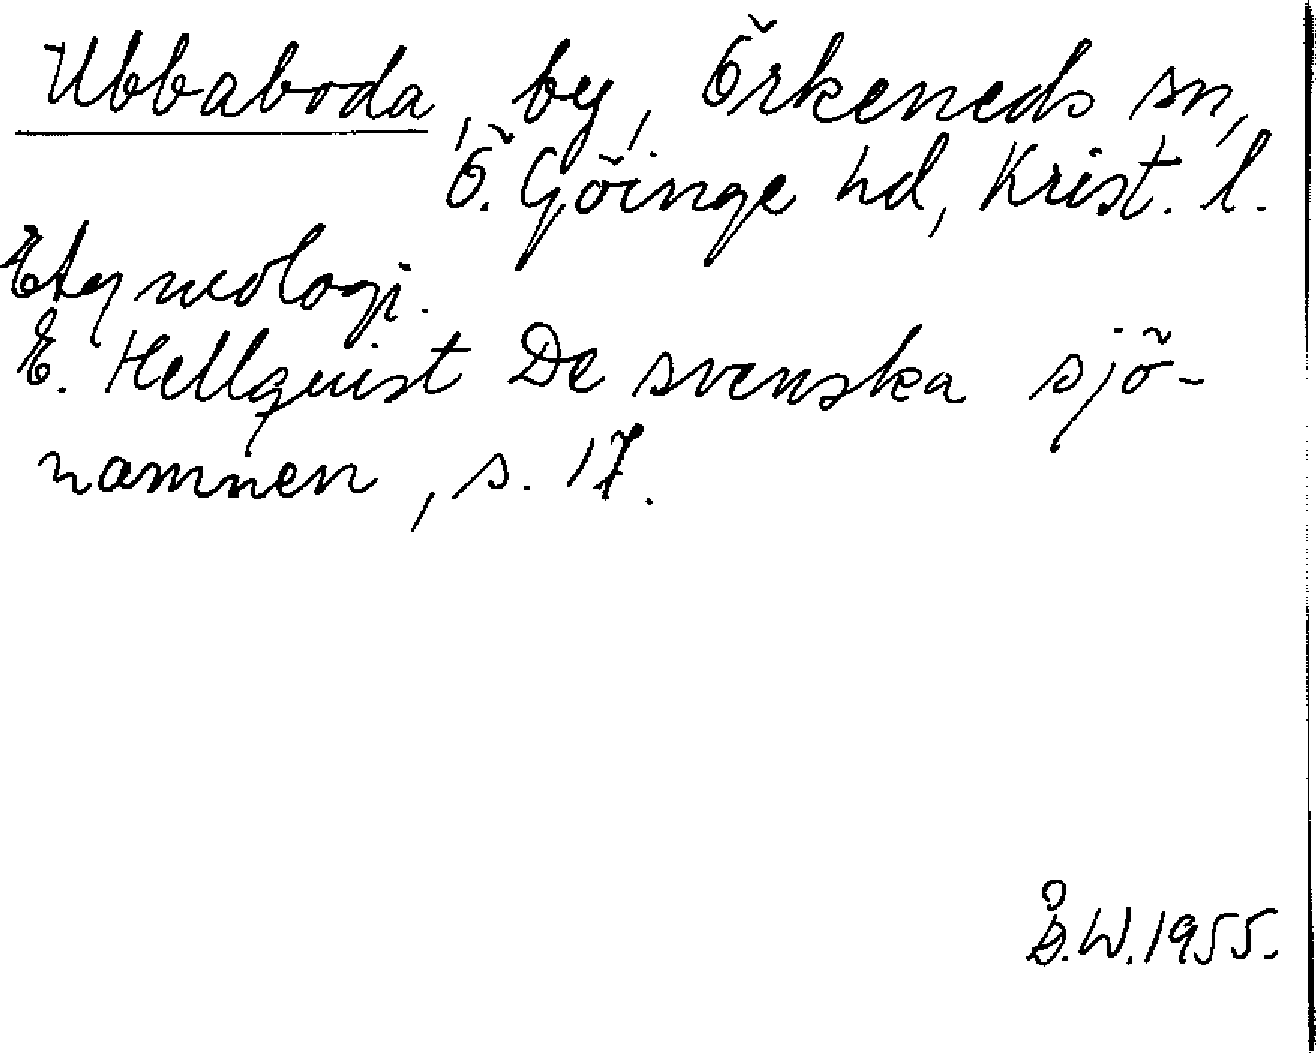 Ubbaboda, by, Örkeneds sn,
Ö. Göinge hd, Krist. l.
Etymologi.
E. Hellquist De svenska sjö-
namnen, s. 17.
Å.W. 1955.